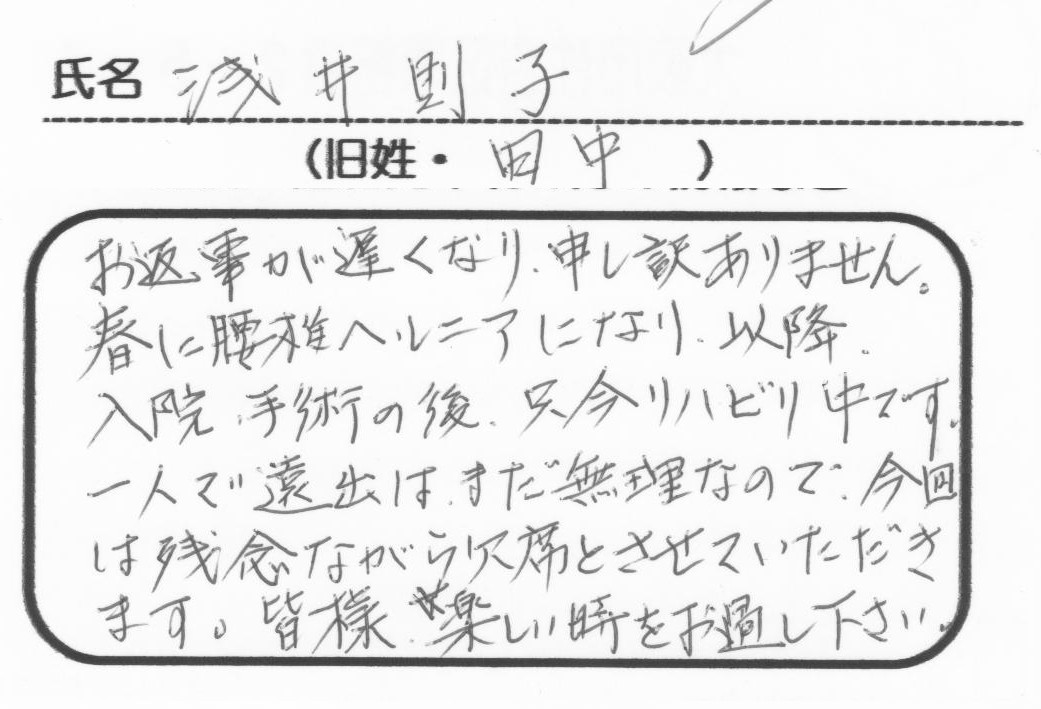 氏名 浅井則子
(旧姓・田中)
お返事が遅くなり、申し訳ありません。
春に腰椎ヘルニアになり、以降、
入院、手術の後、只今リハビリ中です。
一人で遠出は、まだ無理なので、今回
は残念ながら欠席とさせていただき
ます。皆様、楽しい時をお過し下さい。